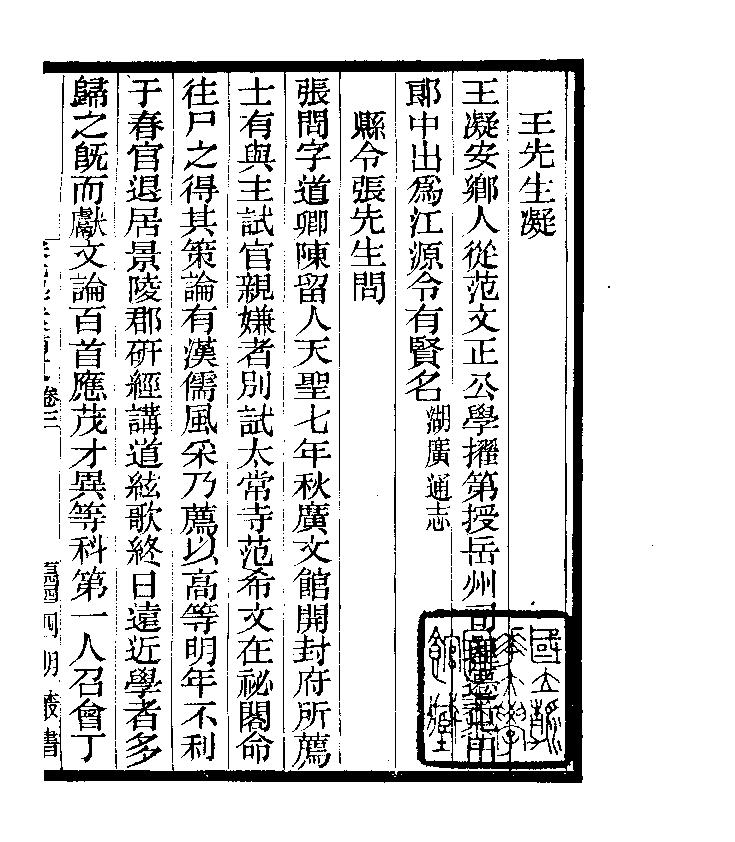 王先生凝
王凝安鄉人從范文正公學擢第授岳州司
郎中出爲江源令有賢名湖廣通志
縣令張先生問
張問字道卿陳留人天聖七年秋廣文館開封府所薦
士有與主試官親嫌者別試太常寺范希文在祕閣命
往尸之得其策論有漢儒風采乃薦以高等明年不利
于春官退居景陵郡硏經講道絃歌終日遠近學者多
歸之旣而獻文論百首應茂才異等科第一人召會丁
卷三
四明叢書